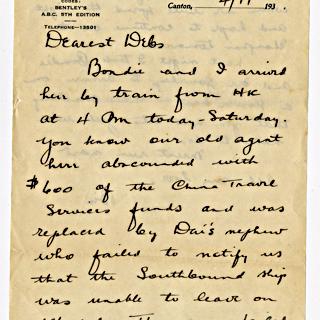 CODES:
BENTLEY'S
A.B.C. 5TH EDITION
TELEPHONE—13501
Canton, 4/17 193 .
Dearest Debs
Bondie and I arrived
here by train from HK
at 4 PM today - Saturday.
You know our old agent
here absconded with
$600 of the China Travel
Services funds and was
replaced by Dai's nephew
who failed to notify us
that the Southbound ship
was unable to leave on